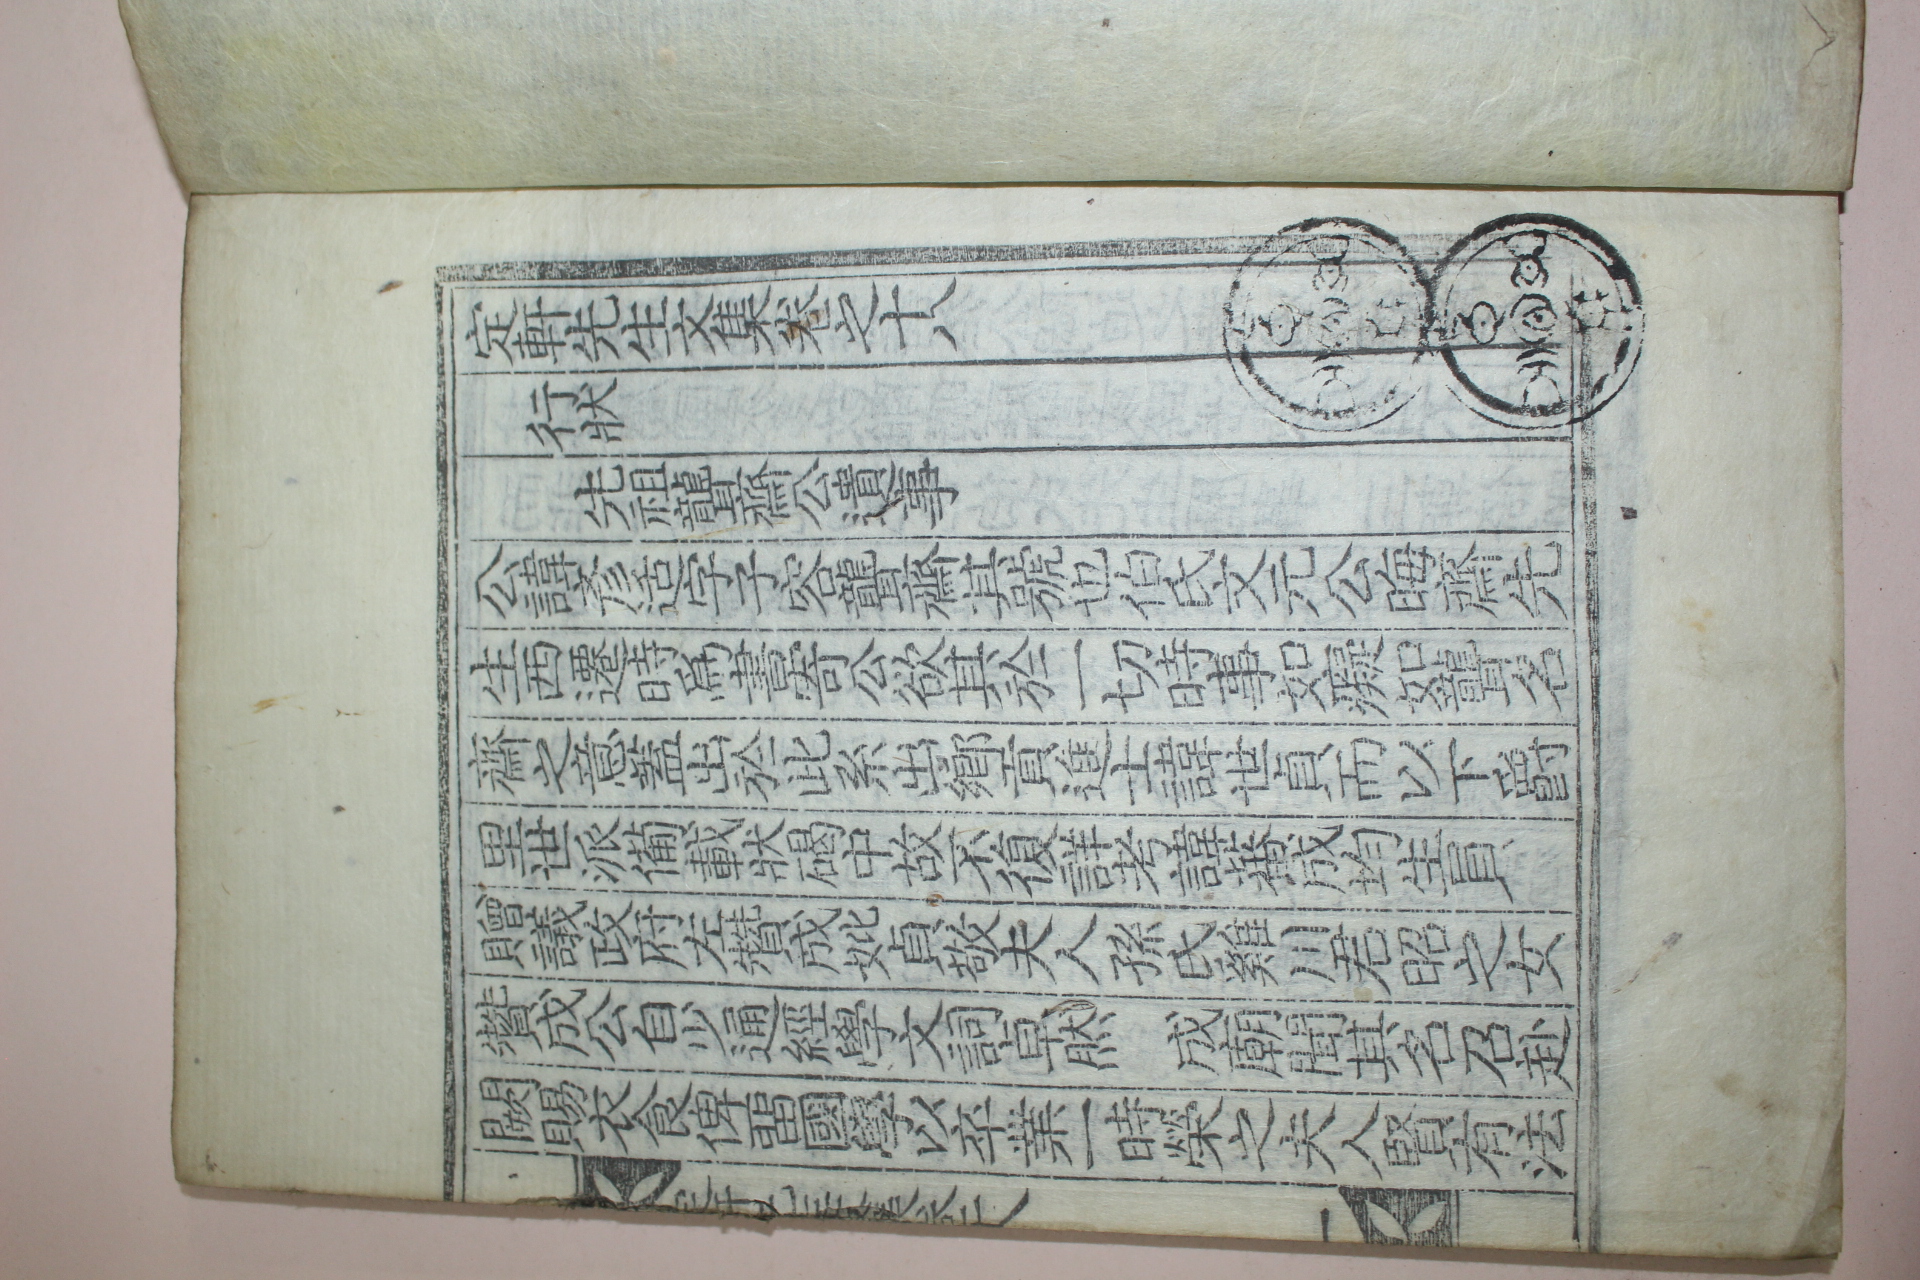 定軒先生文集卷之十八
行狀
先祖聾齋公遺事
公諱彦适字子容聾齋其號也伯氏文元公晦齋先
生西遷時爲書寄公欲其於一切時事如癡如聾名
齋之意蓋出於此系出鄕貢進士諱世貞而以下爵
里世派備載狀碣中故不復詳考諱蕃成均生員
贈議政府左贊成妣貞敬夫人孫氏雞川君昭之女
贊成公自少通經學文詞卓然 成廟聞其名召赴
闕賜衣食俾留國學以卒業一時榮之夫人賢有法
定軒先生文集卷十八
一